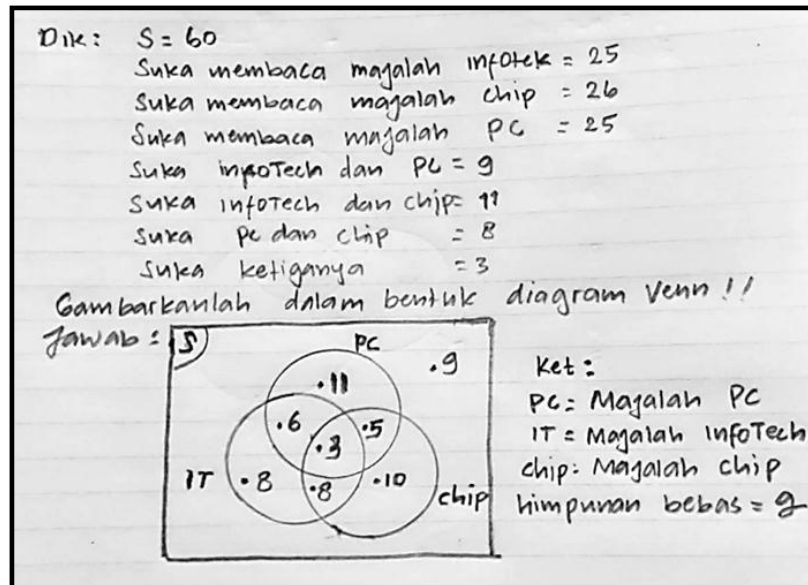 Dik: S = 60
Suka membaca majalah infotek = 25
Suka membaca majalah chip = 26
Suka membaca majalah PC = 25
Suka infoTech dan PC = 9
Suka infoTech dan chip = 11
Suka pc dan chip = 8
Suka ketiganya = 3
Gambarkanlah dalam bentuk diagram Venn !!
Jawab :
S
PC
.9
.11
.6
.5
.3
IT
.8
.8
.10
chip
Ket :
PC = Majalah PC
IT = Majalah InfoTech
chip: Majalah chip
himpunan bebas = 9